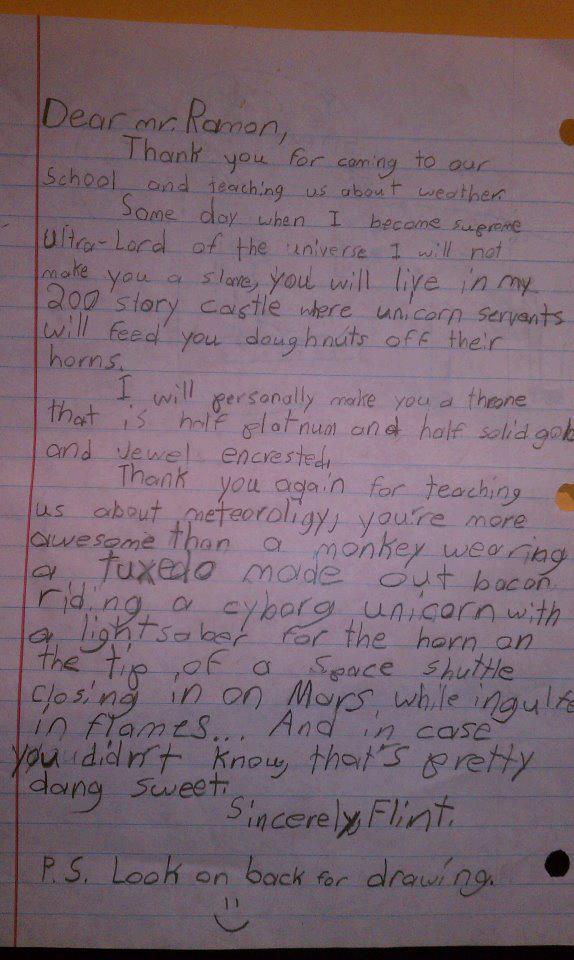 Dear mr. Ramon,
Thank you for coming to our
School and teaching us about weather.
Some day when I become supreme
Ultra-Lord of the universe I will not
make you a slave, you will live in my
200 story castle where unicorn servants
will feed you doughnuts off their
horns.
I will personally make you a throne
that is half platnum and half solid gold
and jewel encrested.
Thank you again for teaching
us about meteoroligy, you're more
awesome than a monkey wearing
a tuxedo made out bacon
riding a cyborg unicorn with
a lightsaber for the horn on
the tip of a space shuttle
closing in on Mars while ingulfed
in flames... And in case
you didn't know, that's pretty
dang sweet.
Sincerely, Flint.
P.S. Look on back for drawing.